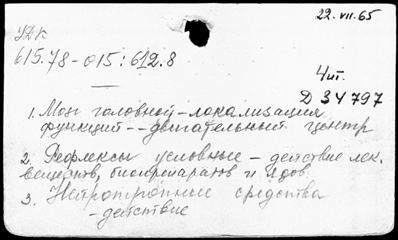 22.VII.65
УДК
615.78-015:612.8
Чит.
D 34797
1. Мозг головной - локализация
функций -- двигательный центр
2. Рефлексы условные - действие лек.
веществ, биопрепаратов и ядов.
3. Нейротропные средства
- действие